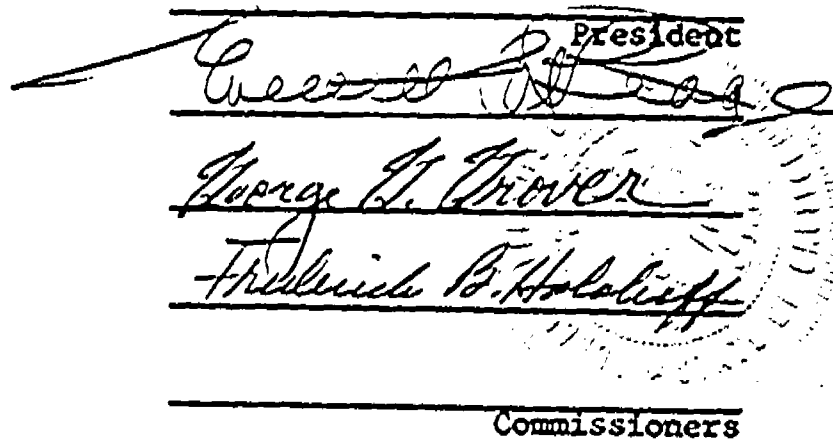 President
George G. Grover
Frederick B. Holoboff
Commissioners